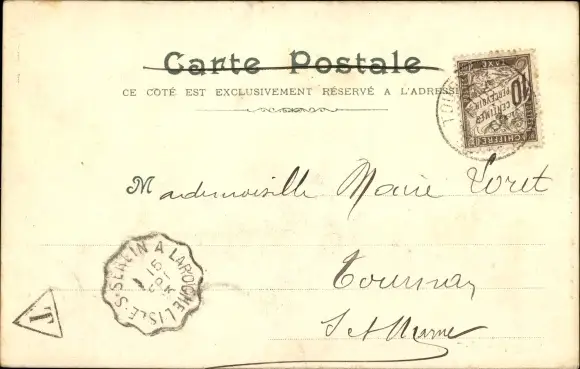 Carte Postale
CE COTÉ EST EXCLUSIVEMENT RÉSERVÉ A L'ADRESSE
10
CENTIMES
A PERCEVOIR
CHIFFRE
Mademoiselle Marie Loret
Tournan
S et Marne
L'ISLE-S-SEREIN A LAROCHE
15
T